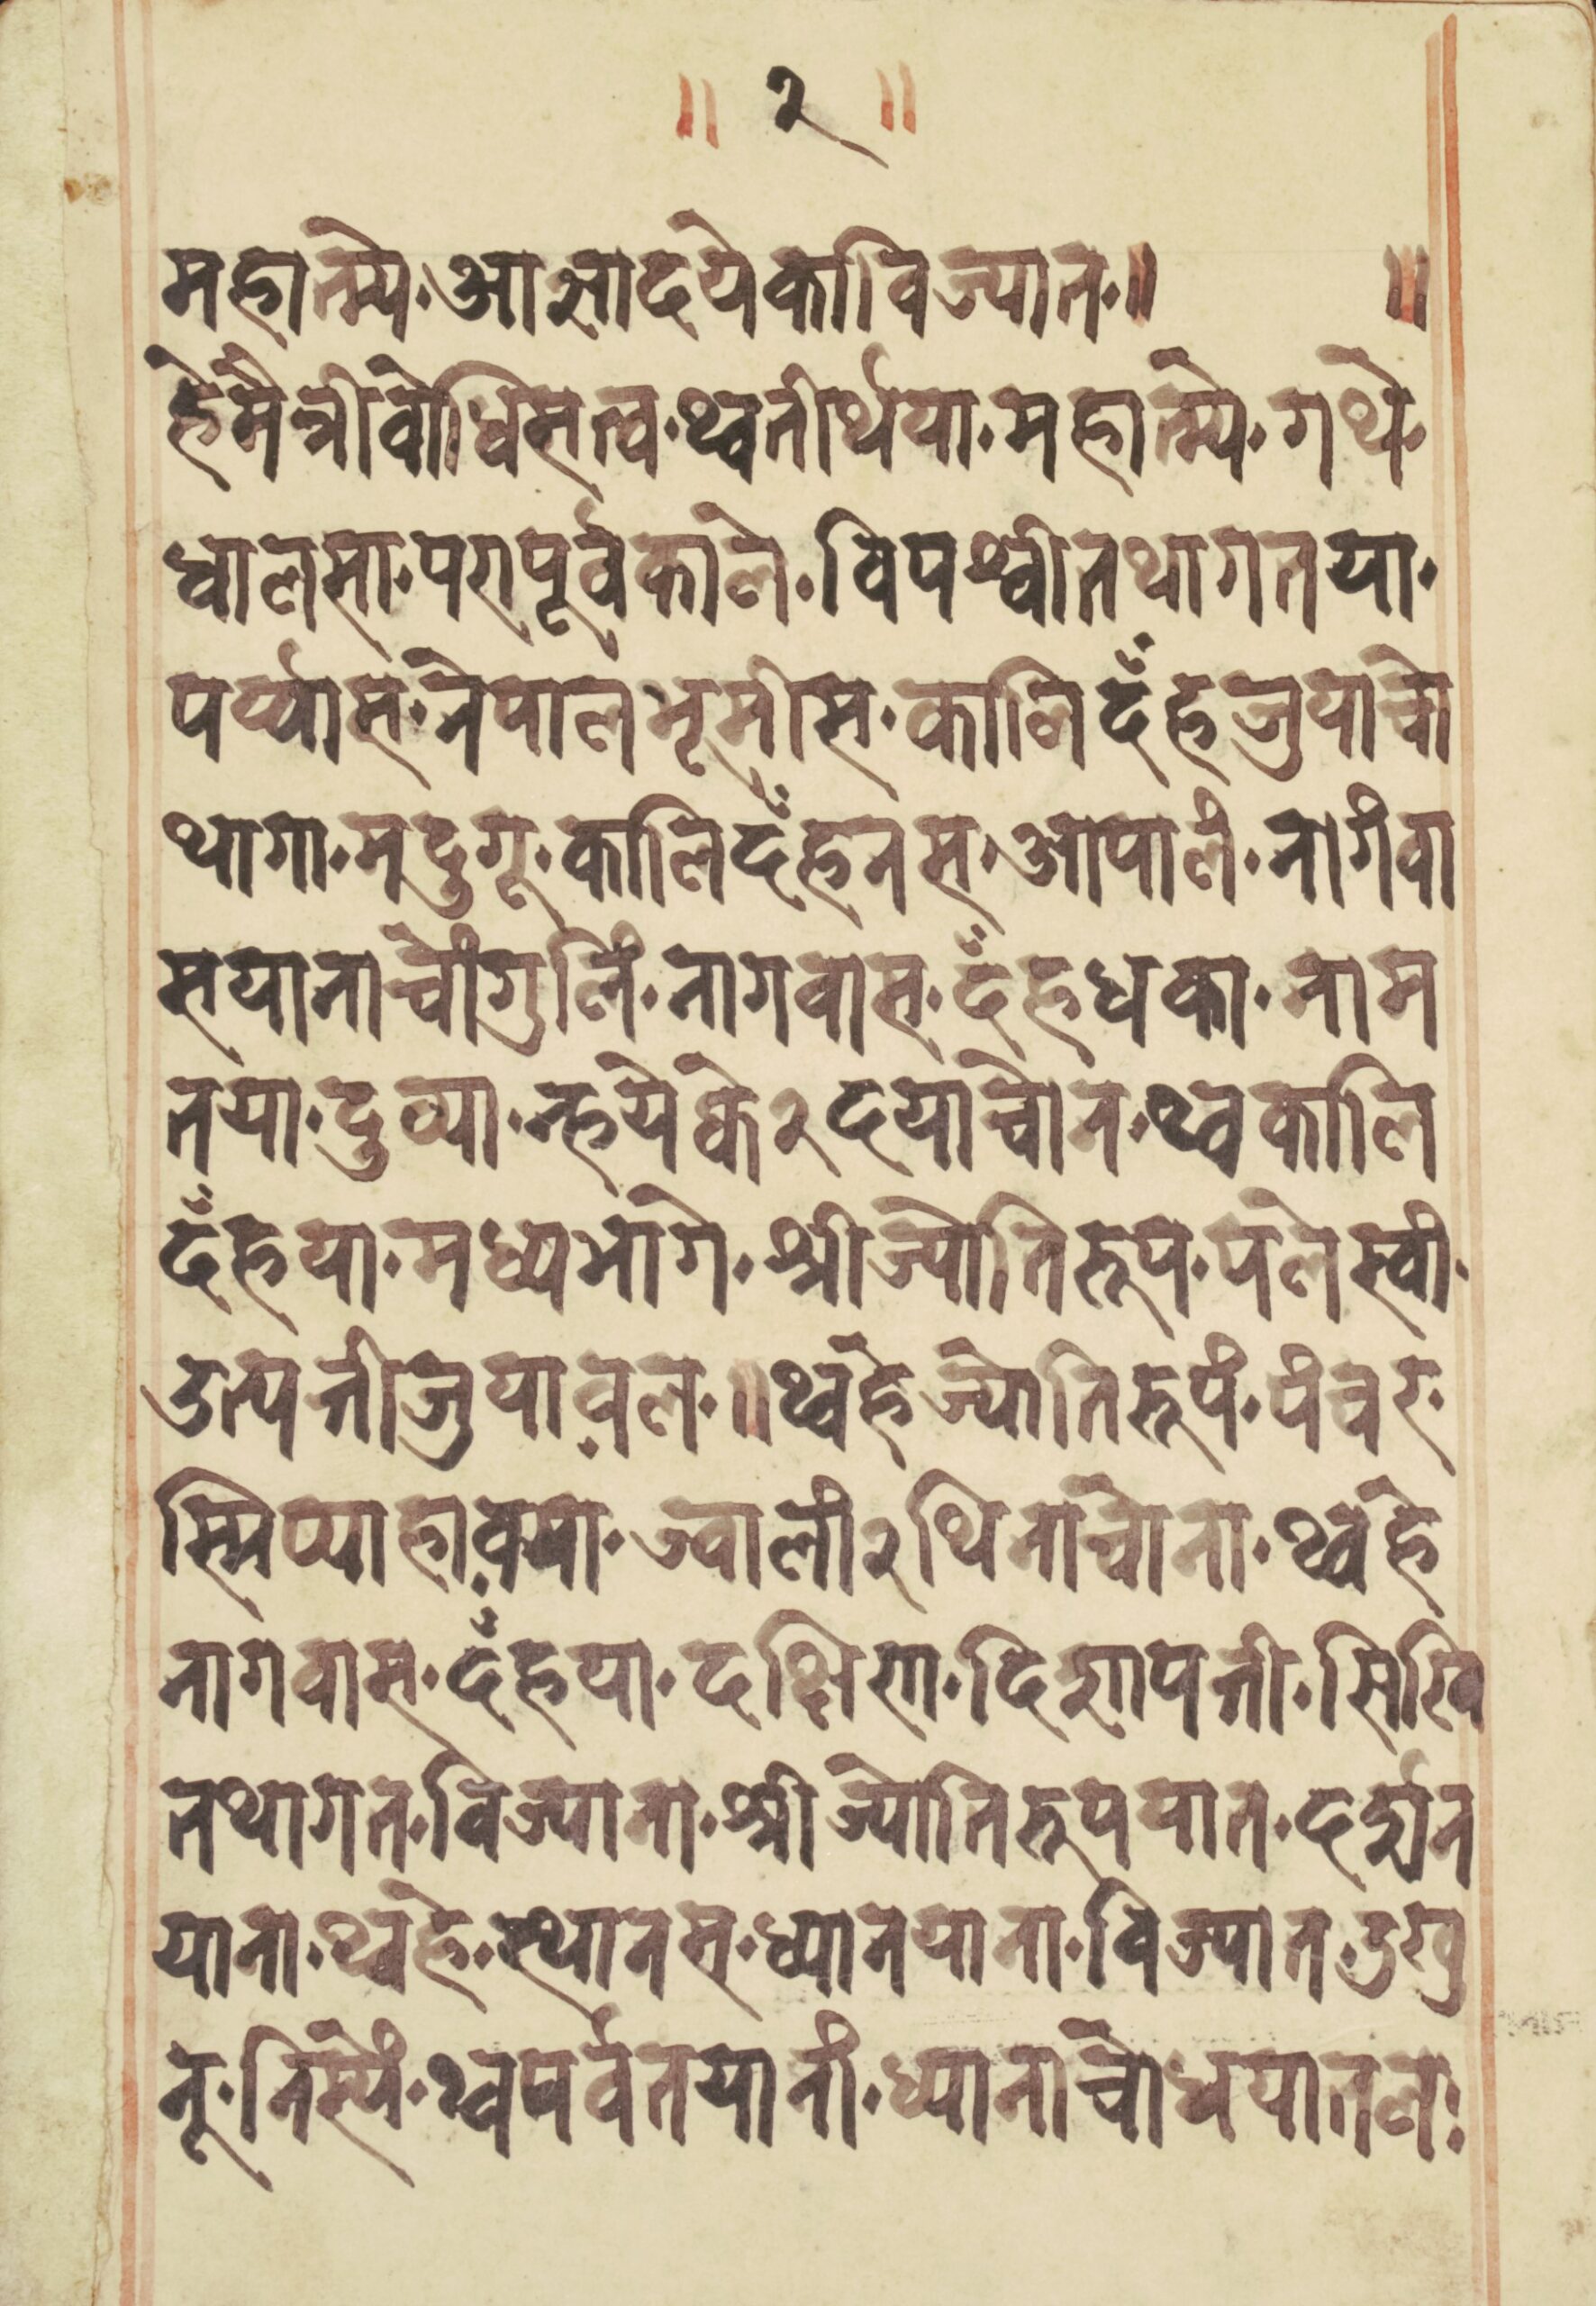 ॥ २ ॥
महात्म्ये·आज्ञादयेकाविज्यात·॥ ॥
हेमैत्रीवोधिसत्व·थ्वतीर्थया·महात्म्ये·गथे·
धालसा·परापूर्वकाले·विपश्वीतथागतया·
पर्य्यास·नेपालभूमीस·कालिदँहजुयाचो
थागा·मदुगू·कालिदँहनस·आपालं·नागंवा
सयानाचोंगुलिं·नागवास·दँहधका·नाम
तया·दुव्या·न्हयेके२दयाचोन·थ्वकालि
दँहया·मध्यभागे·श्रीज्योतिरूप·पलेस्वी·
उत्पत्तीजुयावल·॥थ्वहेज्योतिरूपं·पंचर
स्मिप्याहावया·ज्वाली२थिनाचोना·थ्वहे
नागवास·दँहया·दक्षिण·दिशापत्ती·सिखि
तथागत·विज्याना·श्रीज्योतिरूपयात·दर्शन
याना·थ्वहे·स्थानस·ध्यानयाना·विज्यात·उखु
नू·निस्यें·थ्वपर्वतयानी·ध्यानाचोधयातल·